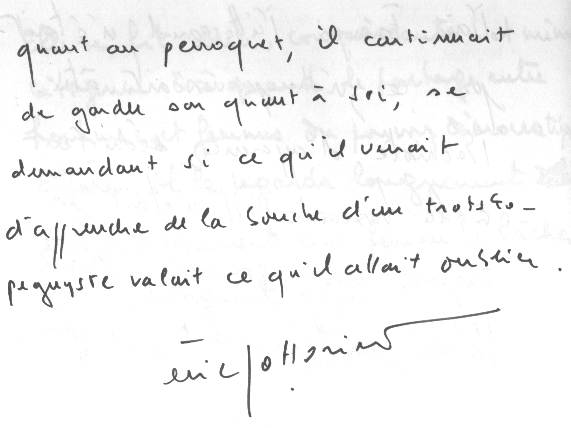 quant au perroquet, il continuait
de garder son quant à soi, se
demandant si ce qu'il venait
d'apprendre de la bouche d'un trotsko-
peguyste valait ce qu'il allait oublier.
eric fottorino